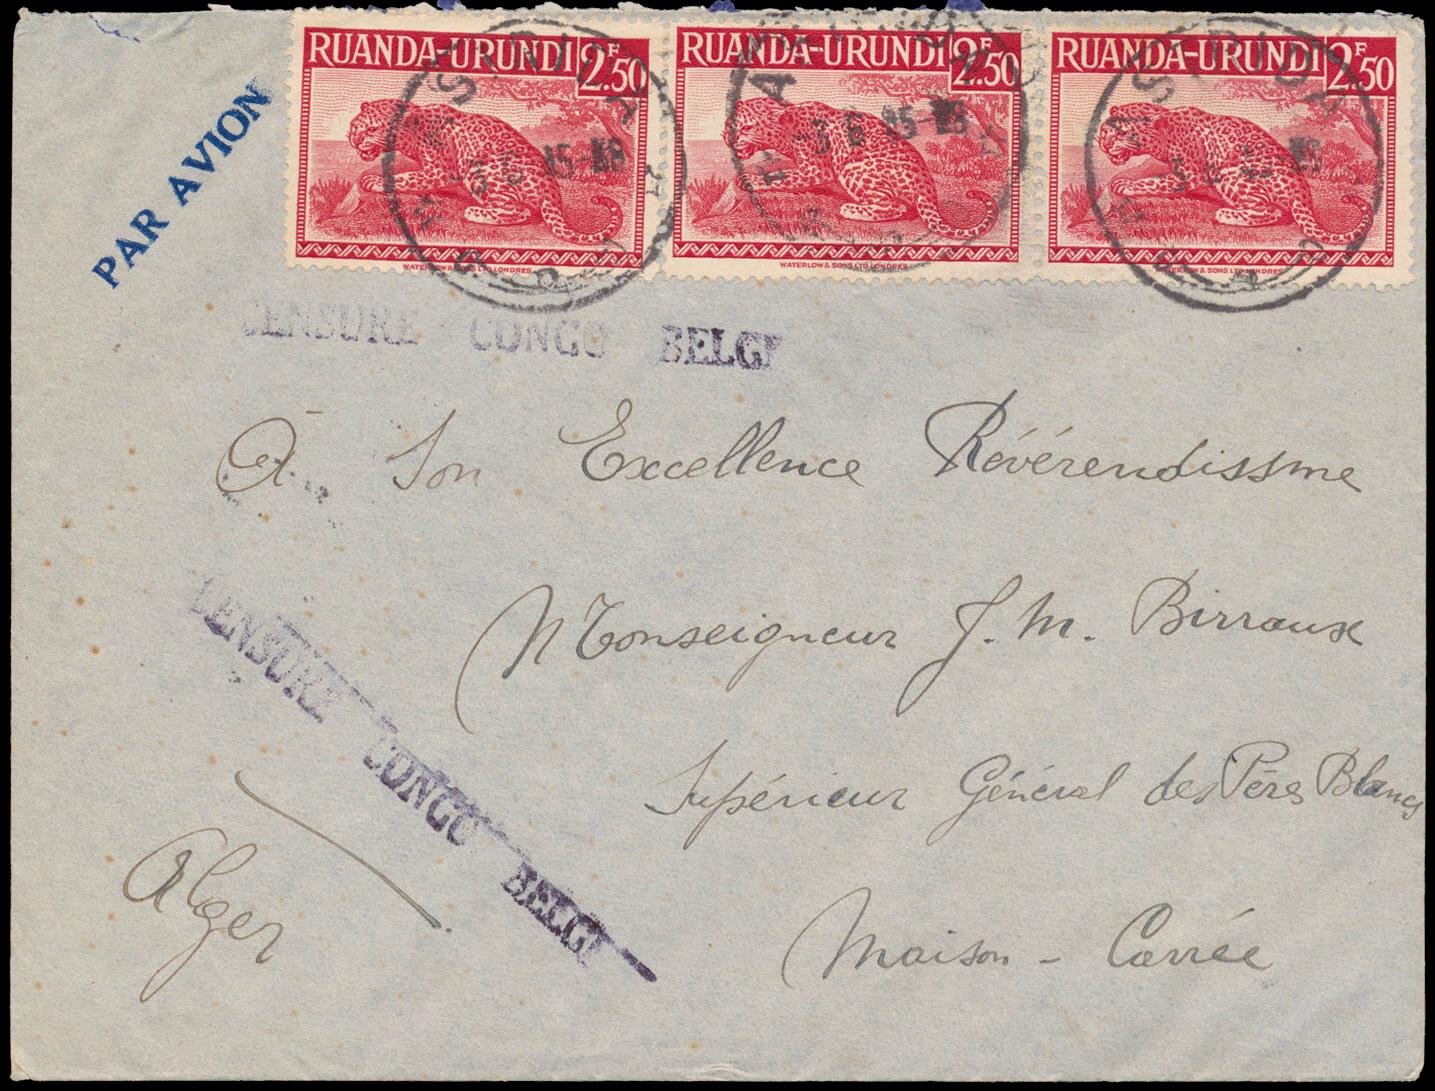 RUANDA-URUNDI 2F.50
WATERLOW & SONS LTD LONDRES
RUANDA-URUNDI 2F.50
WATERLOW & SONS LTD LONDRES
RUANDA-URUNDI 2F.50
WATERLOW & SONS LTD LONDRES
ASTRIDA
ASTRIDA
ASTRIDA
PAR AVION
CENSURE CONGO BELGE
À Son Excellence Révérendissme
Monseigneur J. M. Birraux
CENSURE CONGO BELGE
Supérieur Général des Pères Blancs
Alger
Maison - Carrée